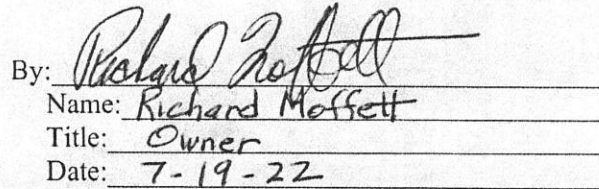 By: Richard Moffett
Name: Richard Moffett
Title: Owner
Date: 7-19-22